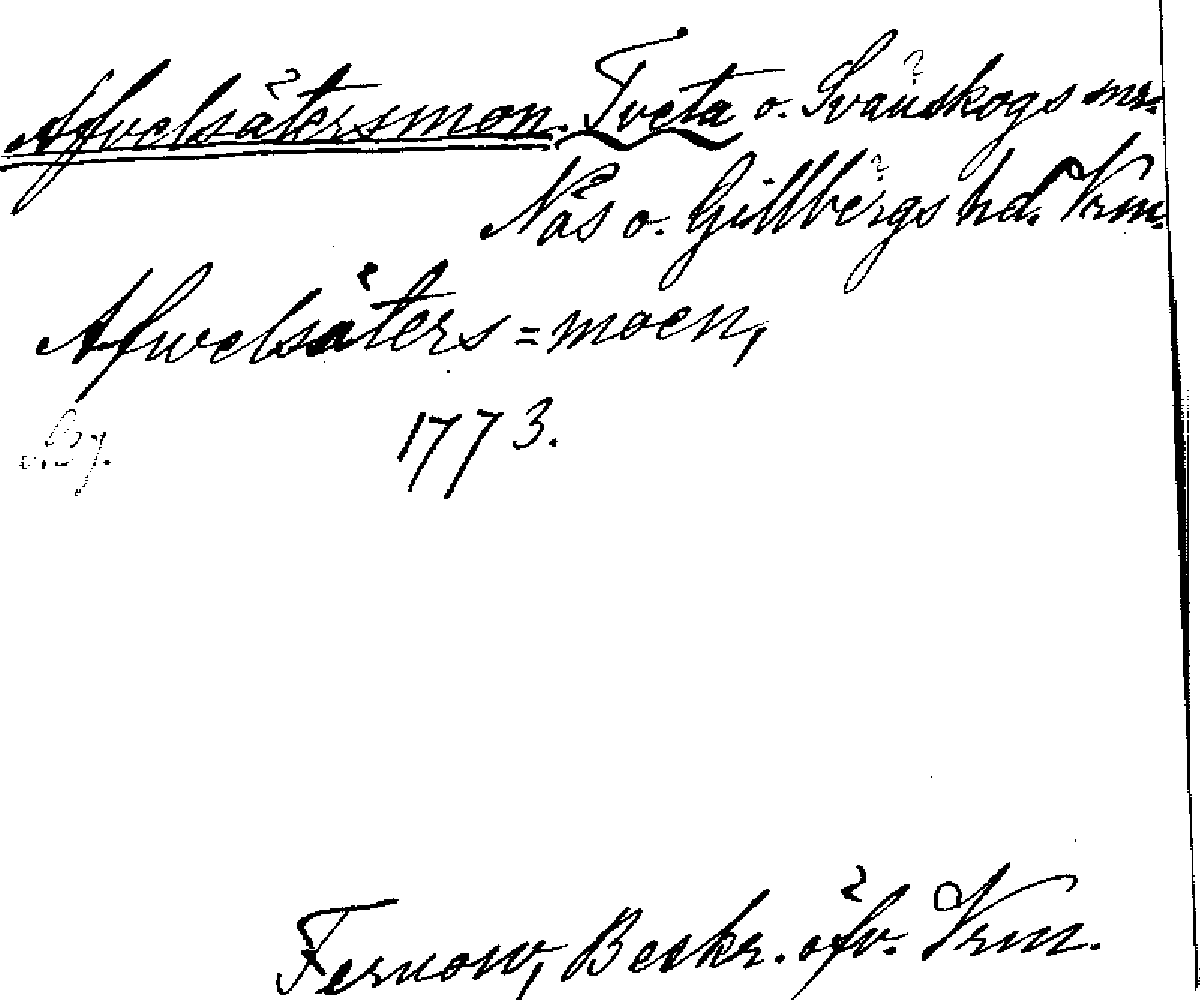 Afvelsätersmon. Tveta o. Svanskogs snr.
Näs o. Gillbergs hd. Vrm.
Afwelsäters=moen,
By. 1773.
Fernow, Beskr. öfv. Vrm.